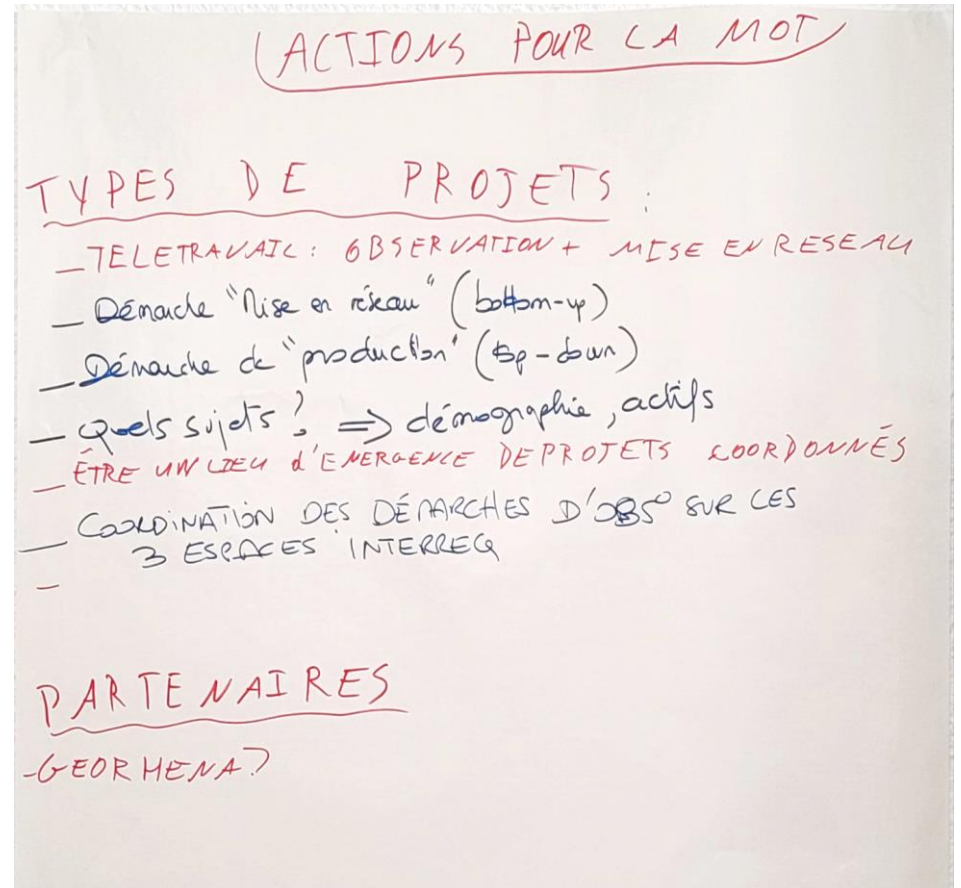 ACTIONS POUR LA MOT
TYPES DE PROJETS :
_ TELETRAVAIL : OBSERVATION + MISE EN RESEAU
_ Démarche "Mise en réseau" (bottom-up)
_ Démarche de "production" (top-down)
_ Quels sujets ? => démographie, actifs
_ ÊTRE UN LIEU d'EMERGENCE DE PROJETS COORDONNÉS
_ COORDINATION DES DÉMARCHES D'OBS° SUR LES
3 ESPACES INTERREG
_
PARTENAIRES
- GEORHENA ?